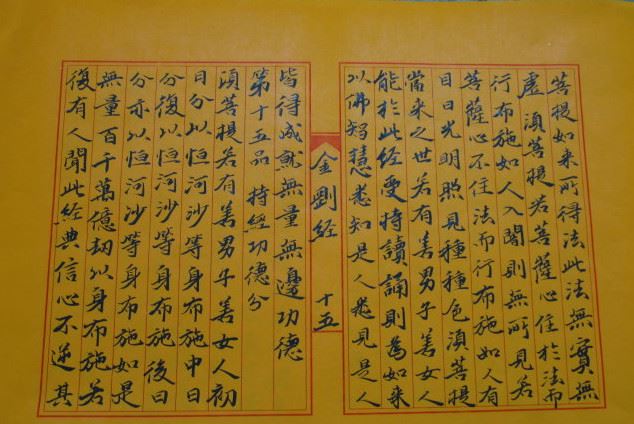 菩提如来所得法此法無實無
虛須菩提若菩薩心住於法而
行布施如人入闇則無所見若
菩薩心不住法而行布施如人有
目日光明照見種種色須菩提
當来之世若有善男子善女人
能於此經受持讀誦則為如来
以佛智慧悉知是人悉見是人
金剛經 十五
皆得成就無量無邊功德
第十五品 持經功德分
須菩提若有善男子善女人初
日分以恒河沙等身布施中日
分復以恒河沙等身布施後日
分亦以恒河沙等身布施如是
無量百千萬億劫以身布施若
復有人聞此經典信心不逆其